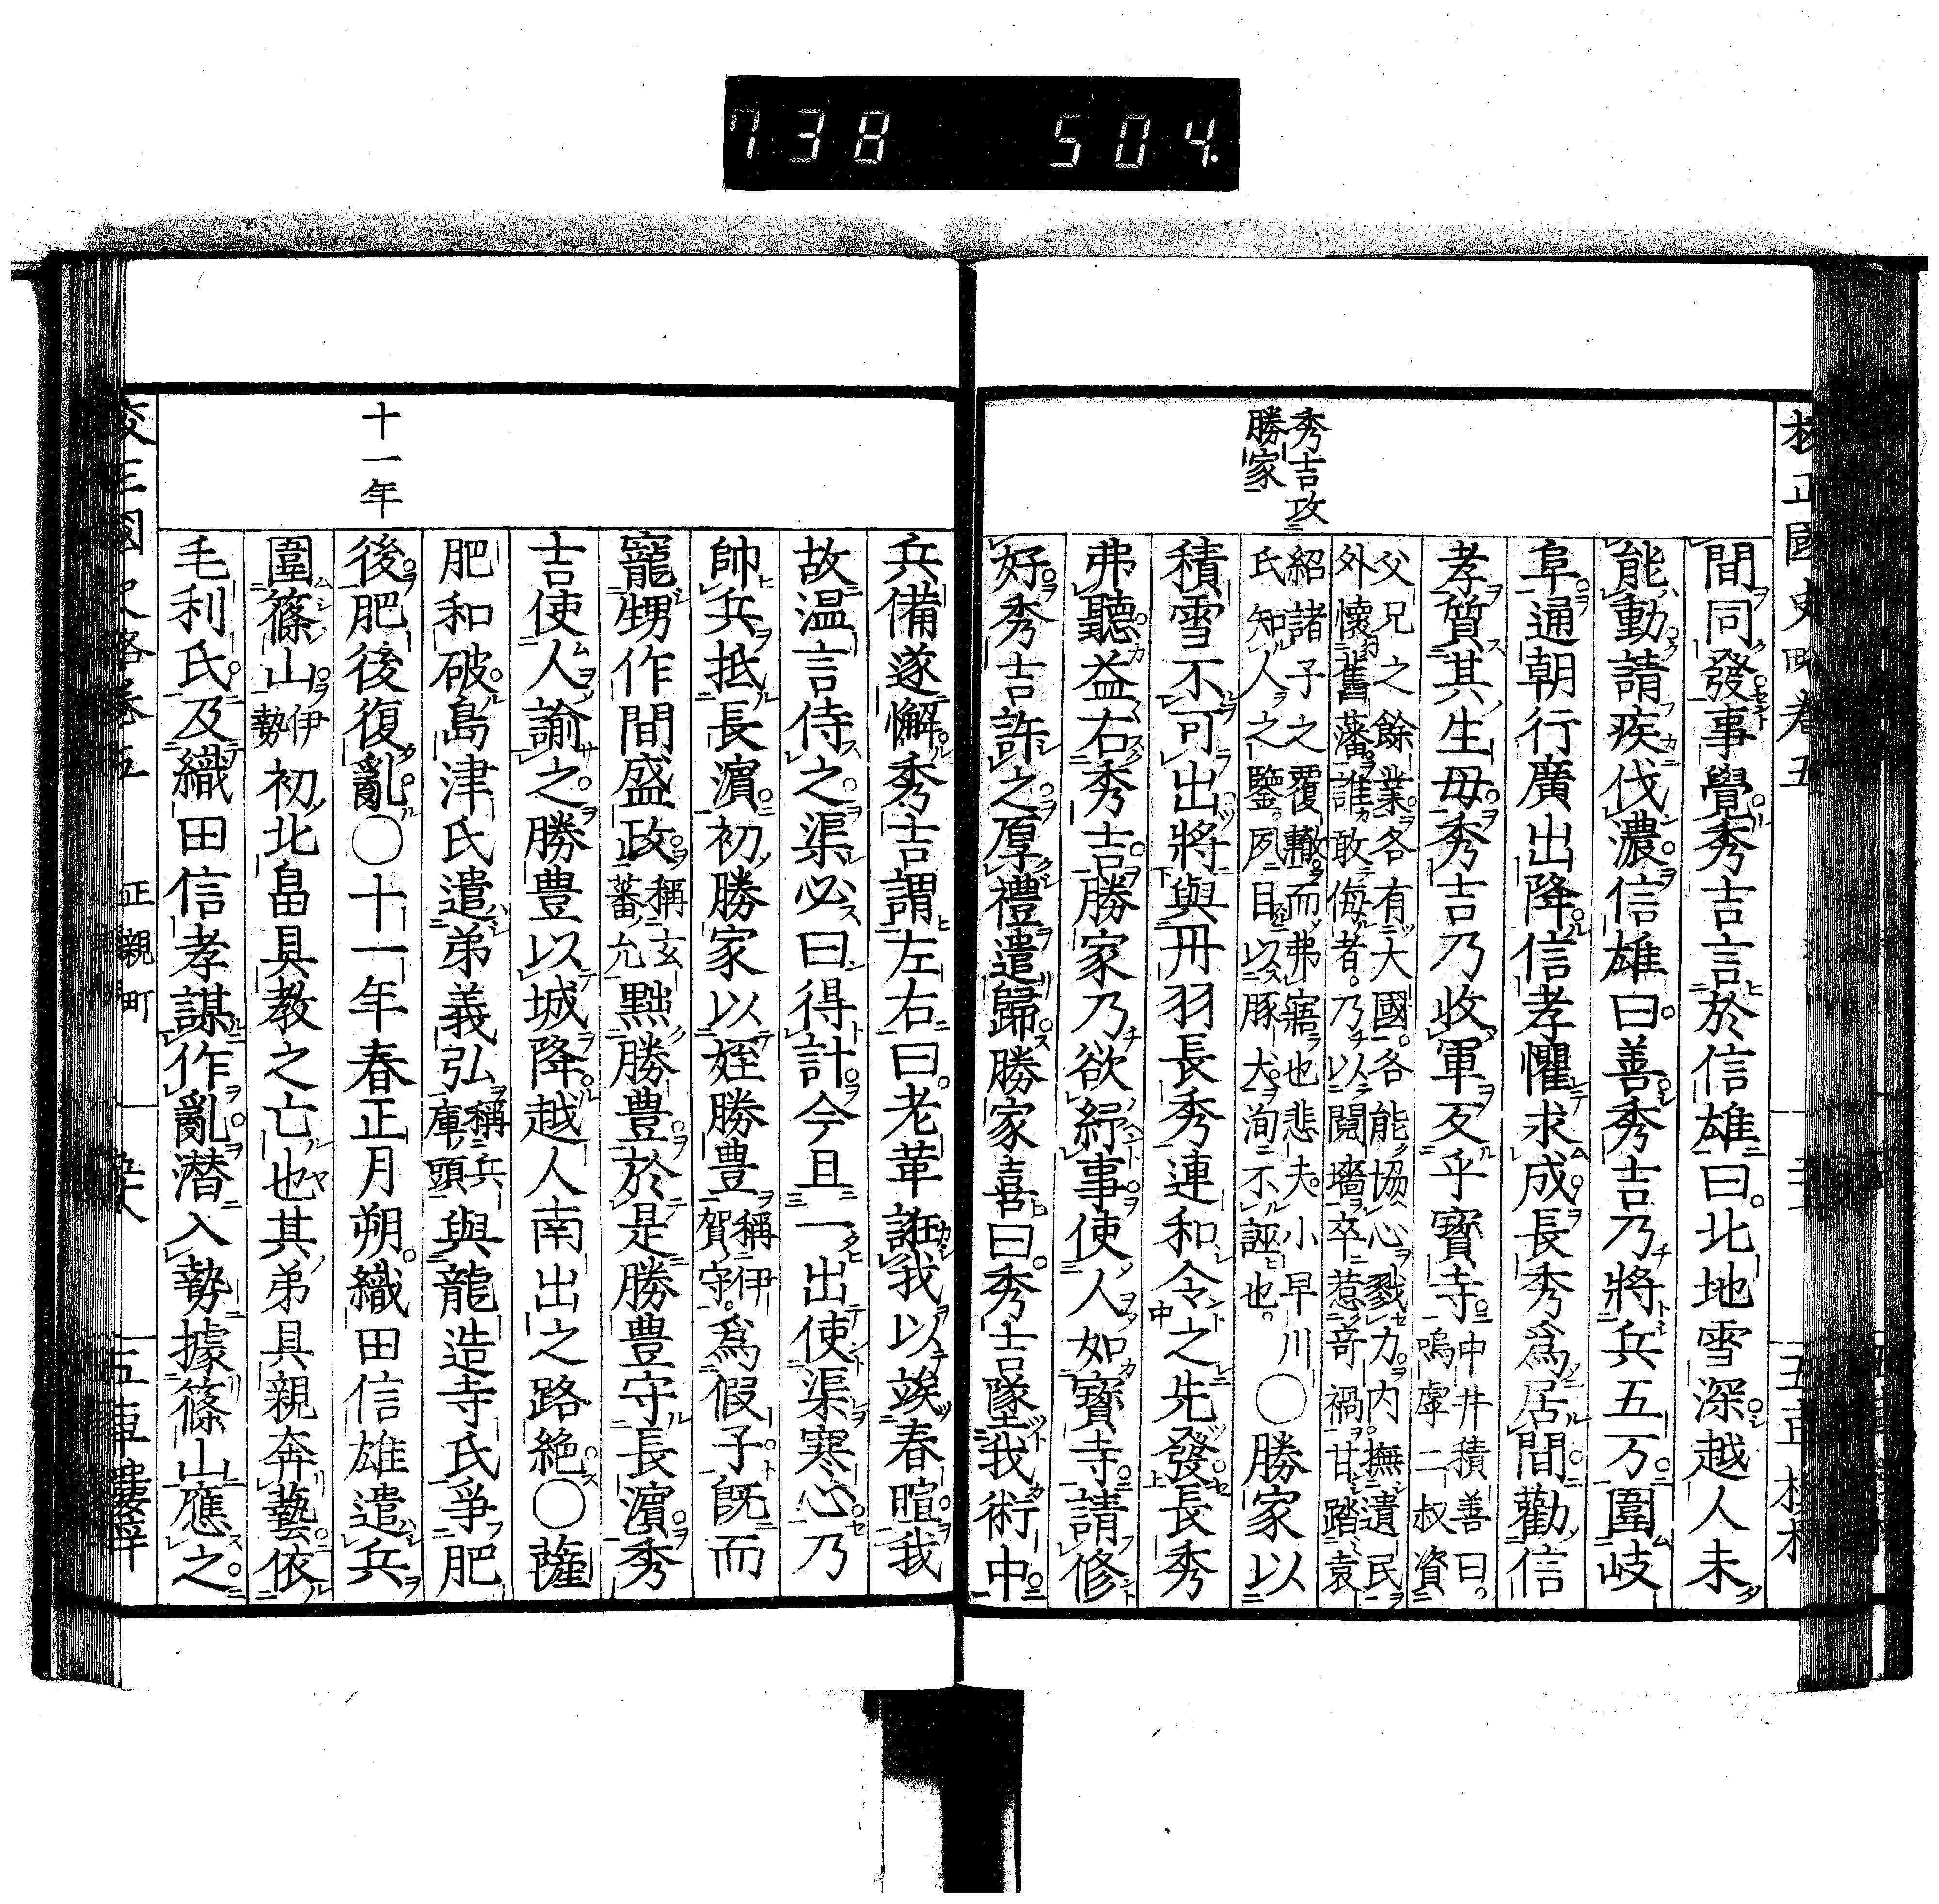 738 504.
秀吉攻
勝家
間同發事覺秀吉言於信雄曰北地雪深越人未
能動請疾伐濃信雄曰善秀吉乃將兵五万圍岐
阜通朝行廣出降信孝懼求成長秀爲居間勸信
孝質其生母秀吉乃收軍
乎寶寺
中井積善曰
嗚虖二叔資
父兄之餘業各有大國各能協心戮力内撫遺民
外懷舊藩誰敢侮者乃以鬩墻卒惹奇禍甘踏袁
紹諸子之覆轍而弗寤也悲夫小早川
氏知人之鑒夙目以豚犬洵不誣也
○勝家以
積雪不可出將與丹羽長秀連和令之先發長秀
弗聽益右秀吉勝家乃欲紓事使人如寶寺請修
好秀吉許之厚禮遣歸勝家喜曰秀吉墜我術中
兵備遂懈秀吉謂左右曰老革誑我以竢春暄我
故温言侍之渠必曰得計今且一出使渠寒心乃
帥兵抵長濵初勝家以姪勝豊
稱伊
賀守
爲假子既而
寵甥作間盛政
稱玄
蕃允
黜勝豊於是勝豊守長濵秀
吉使人諭之勝豊以城降越人南出之路絶○薩
肥和破島津氏遣弟義弘
稱兵
庫頭
與龍造寺氏爭肥
後肥後復亂○十一年春正月朔織田信雄遣兵
圍篠山
伊
勢
初北畠具教之亡也其弟具親奔藝依
毛利氏及織田信孝謀作亂潛入勢據篠山應之
十一年
正親町